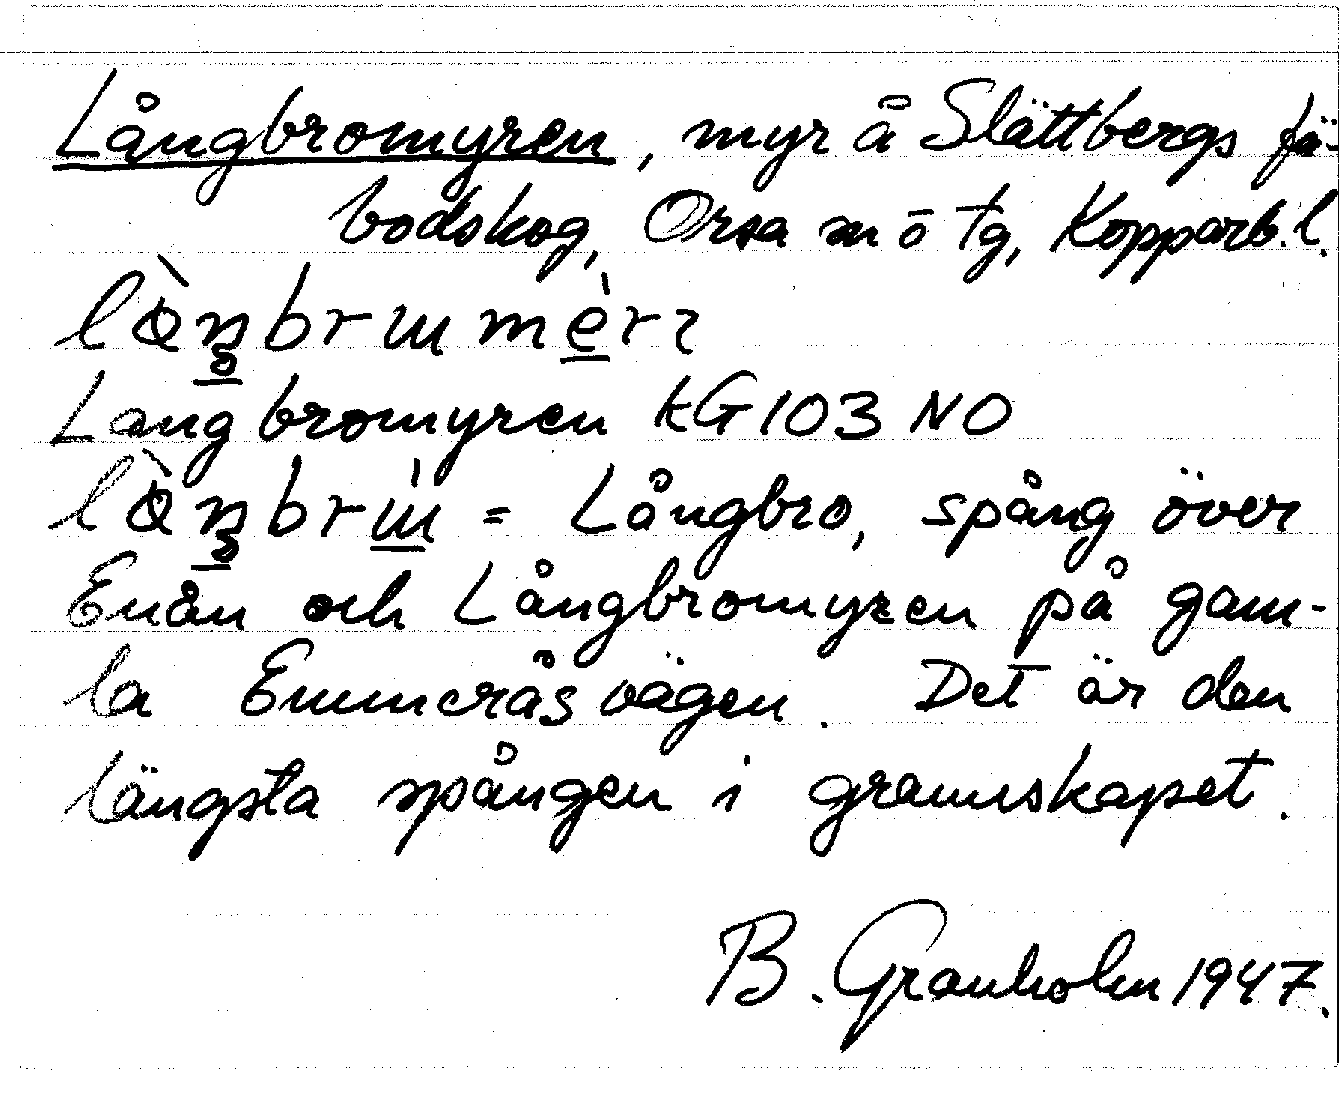 Långbromyren, myr å Slättbergs fä-
bodskog, Orsa sn o tg, Kopparb. l.
Långbromyren kG 103 NO
= Långbro, spång över
Enån och Långbromyren på gam-
la Emmeråsvägen. Det är den
längsta spången i grannskapet.
B. Granholm 1947.